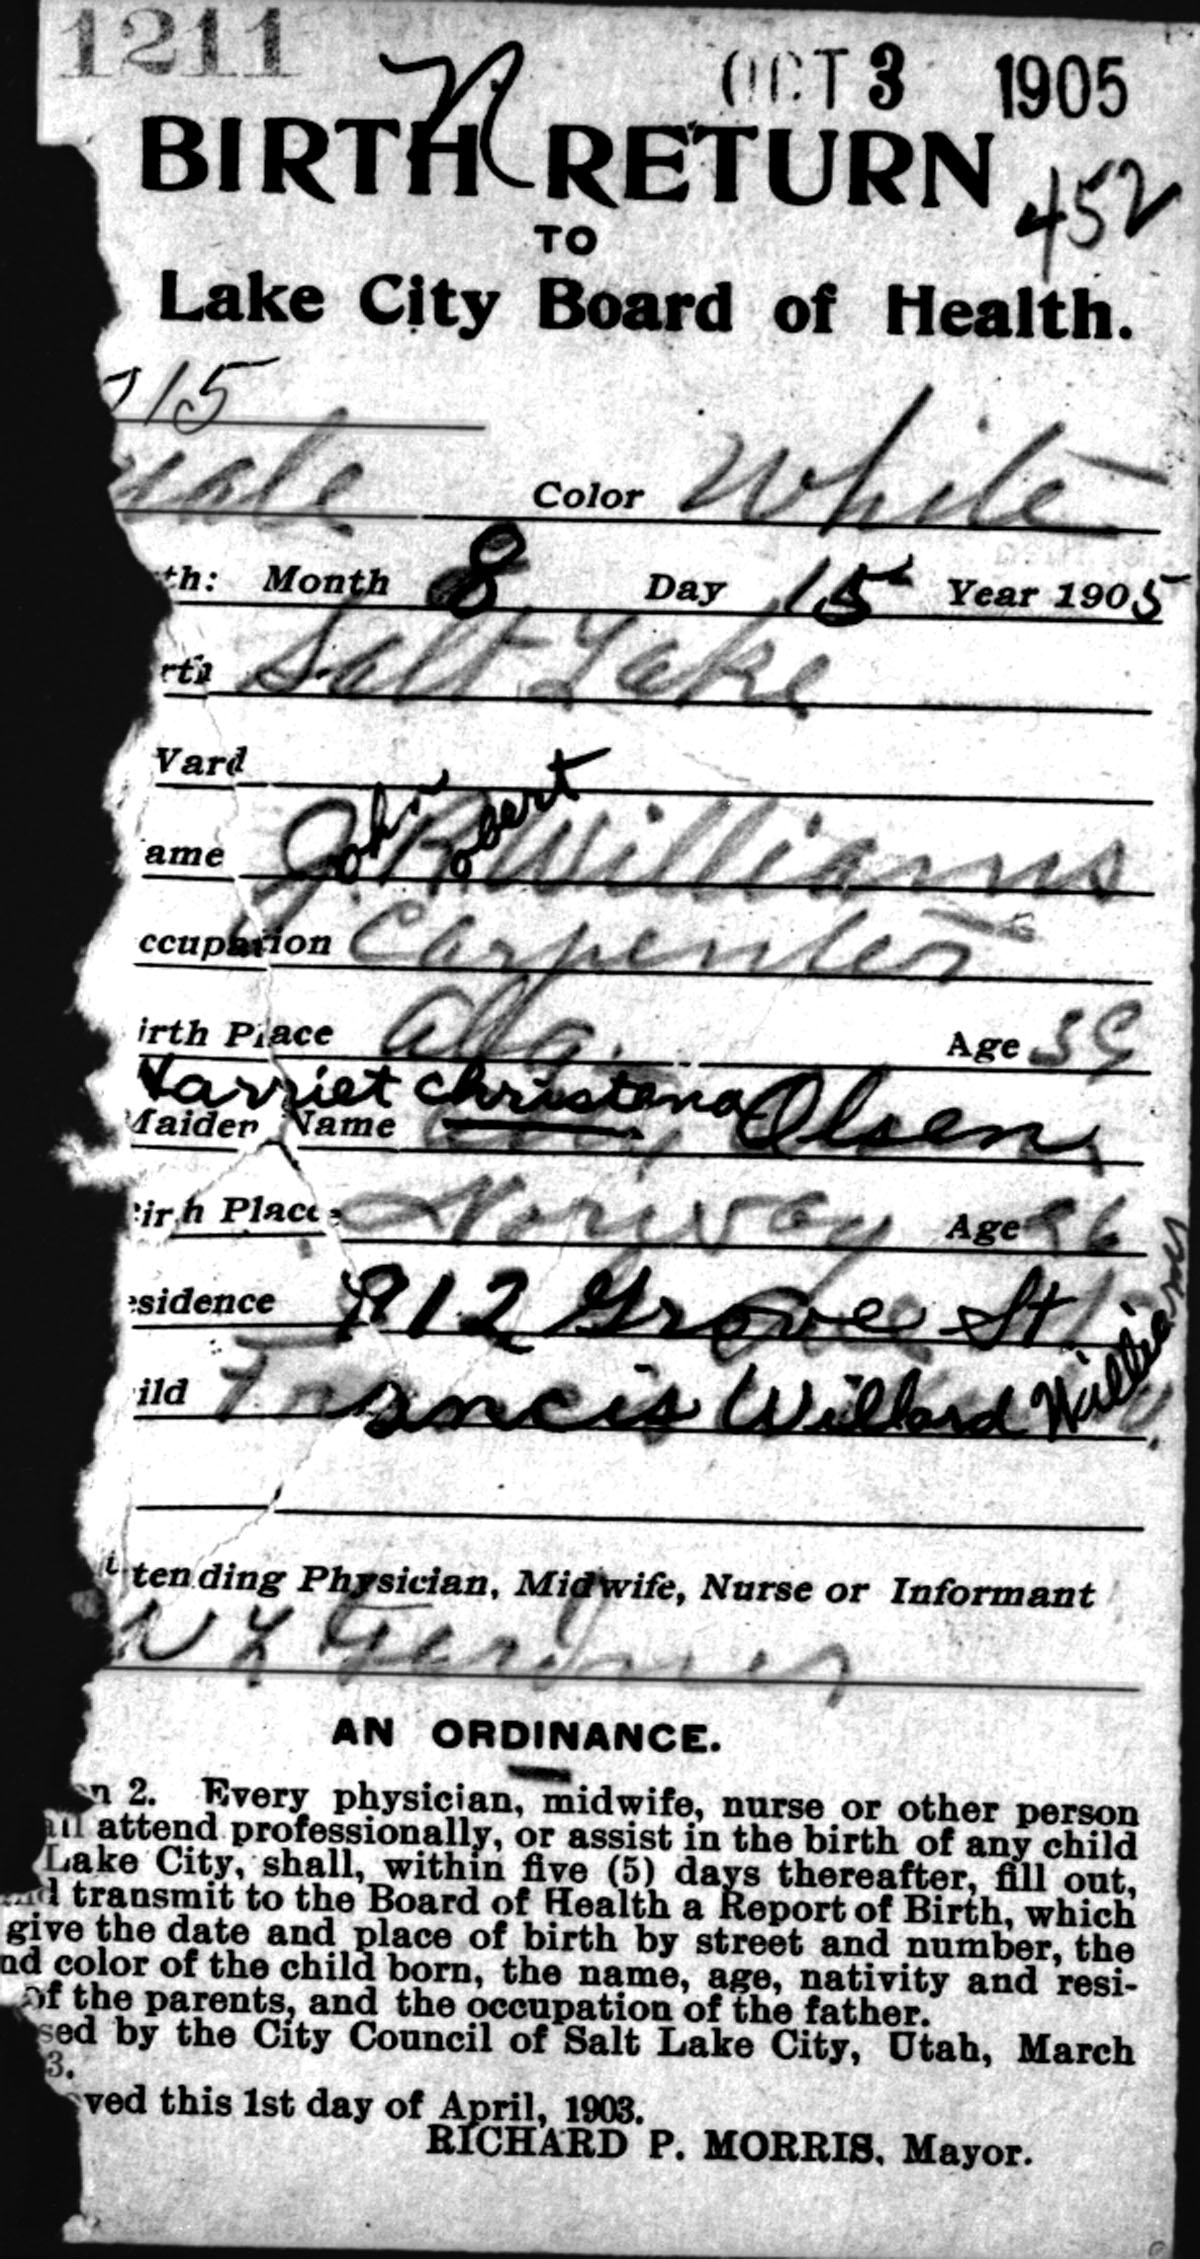 1211
OCT 3 1905
BIRTH RETURN
452
TO
Lake City Board of Health.
715
male Color White
th: Month 8 Day 15 Year 1905
rth Salt Lake
Ward
ame John Robert Williams
ccupation Carpenter
irth Place Ala. Age 39
Harriet Christena Olsen
Maiden Name
irth Place Norway Age 36
esidence 912 Grove St
ild Francis Willard Williams
tending Physician, Midwife, Nurse or Informant
Gardner
AN ORDINANCE.
n 2. Every physician, midwife, nurse or other person
all attend professionally, or assist in the birth of any child
Lake City, shall, within five (5) days thereafter, fill out,
and transmit to the Board of Health a Report of Birth, which
give the date and place of birth by street and number, the
nd color of the child born, the name, age, nativity and resi-
of the parents, and the occupation of the father.
sed by the City Council of Salt Lake City, Utah, March
3.
ved this 1st day of April, 1903.
RICHARD P. MORRIS, Mayor.